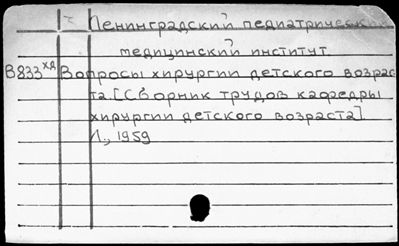 Ленинградский педиатрический
медицинский институт.
В833хд Вопросы хирургии детского возрас
та. [Сборник трудов кафедры
хирургии детского возраста].
Л., 1959